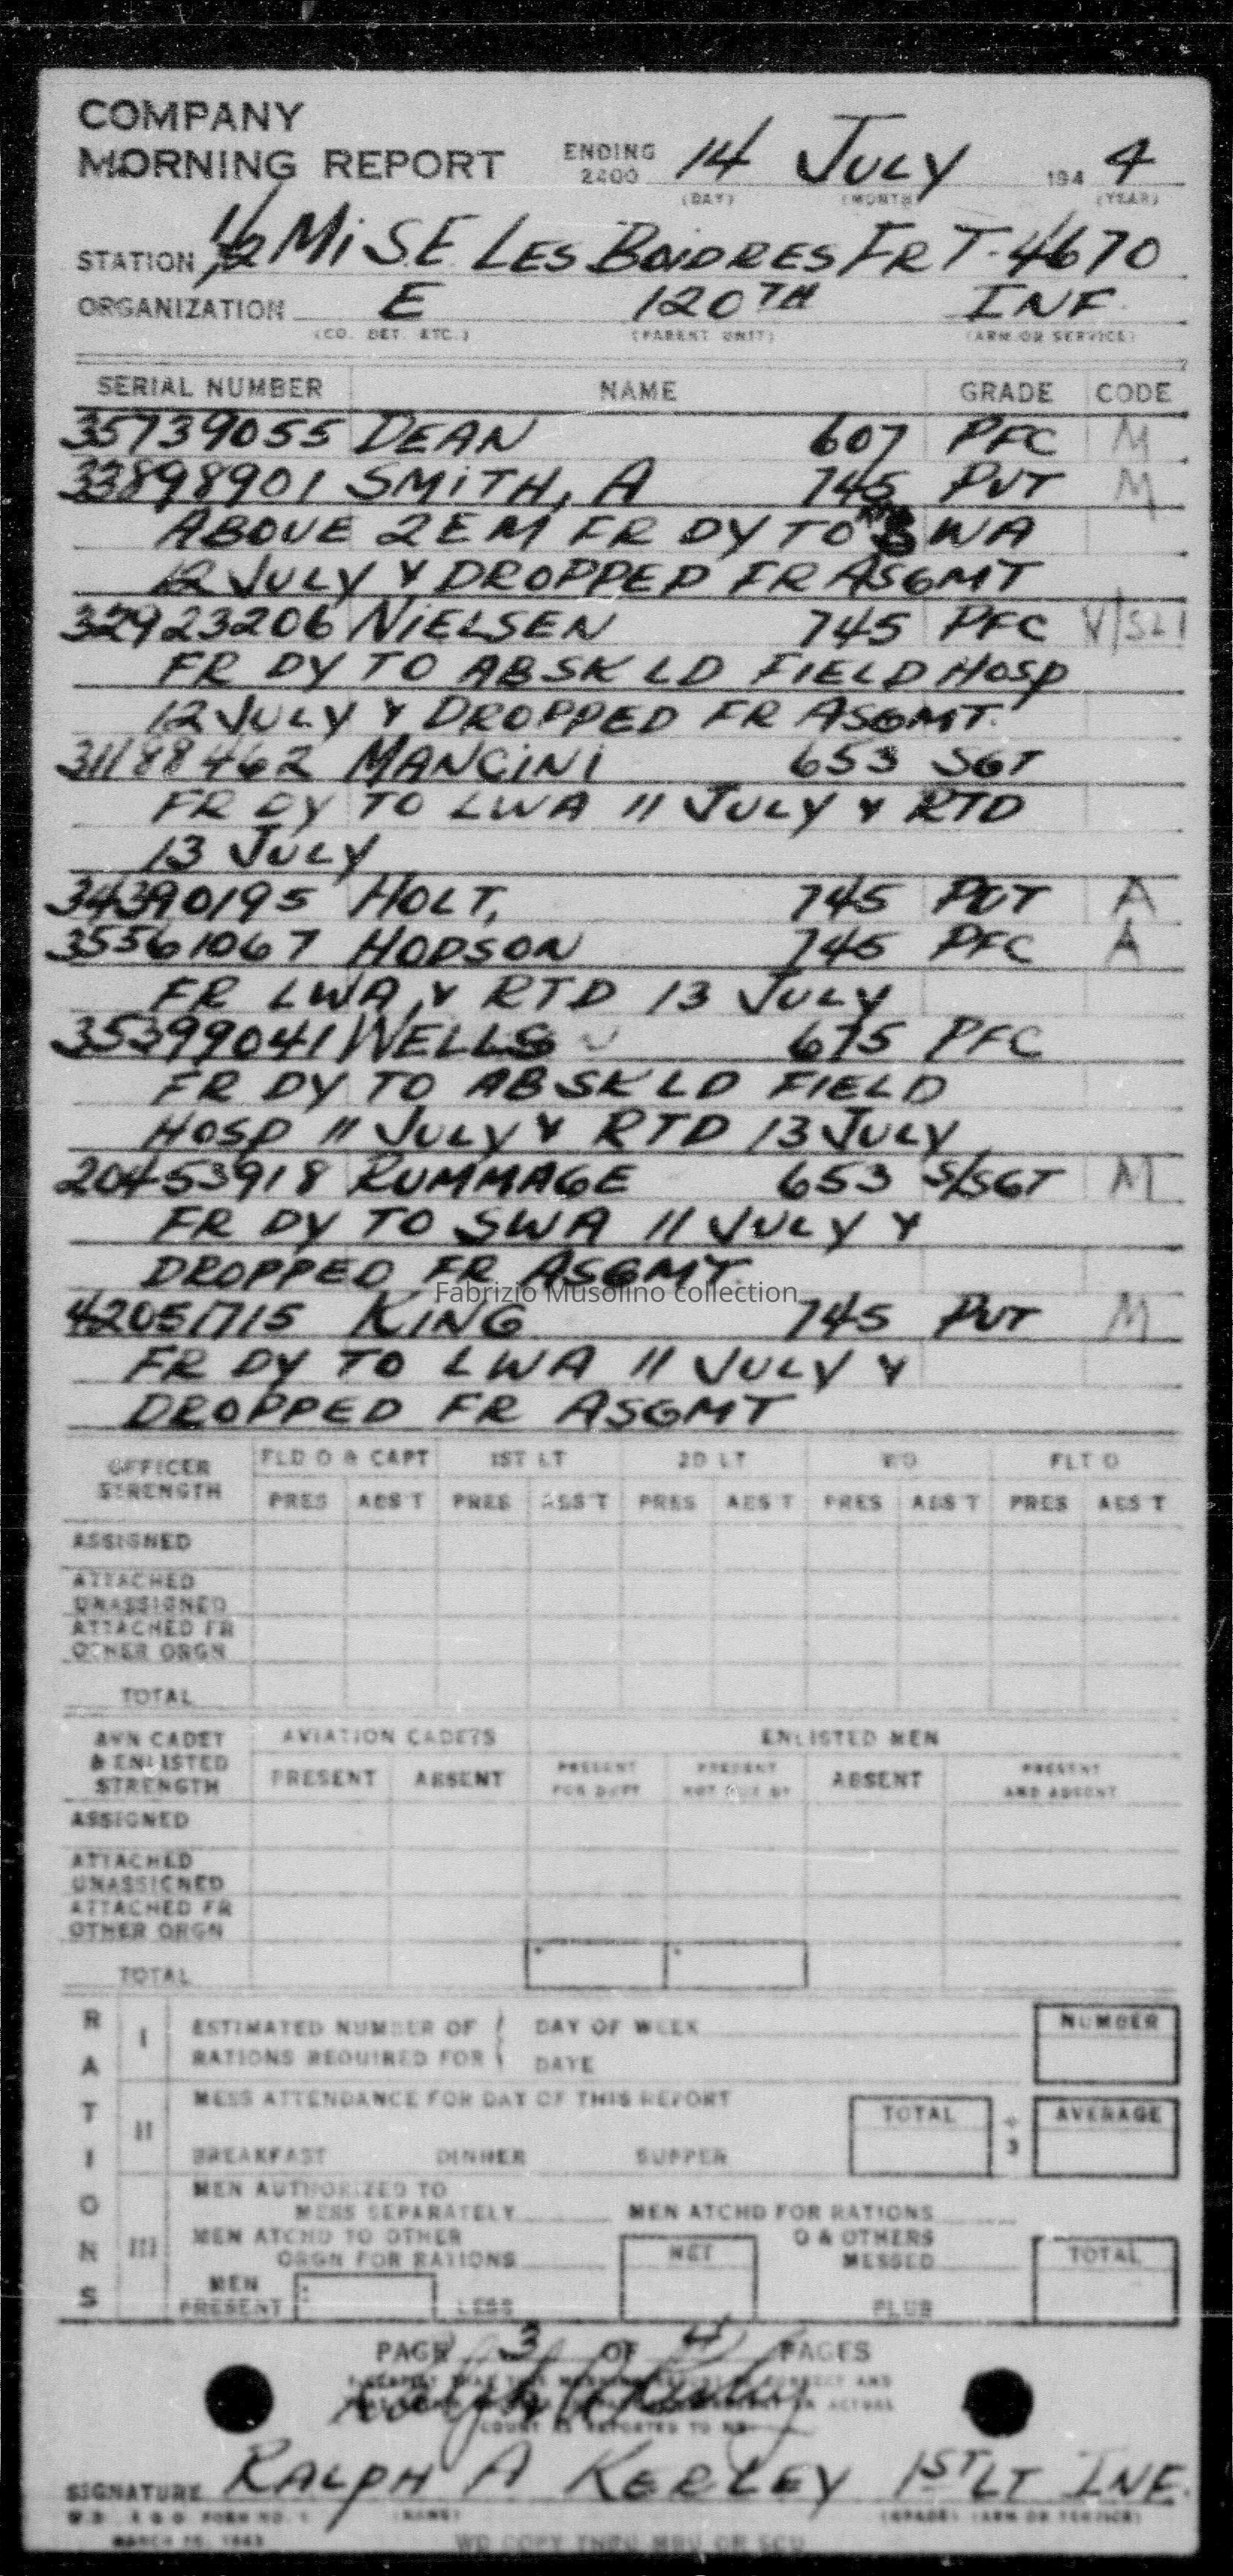 COMPANY
MORNING REPORT ENDING 2400 14 JULY 194 4
(DAY) (MONTH) (YEAR)
STATION 1/2 Mi S.E LES BOIDRES FR T-4670
ORGANIZATION E 120TH INF
(CO. DET. ETC.) (PARENT UNIT) (ARM OR SERVICE)
SERIAL NUMBER NAME GRADE CODE
35739055 DEAN 607 PFC M
33898901 SMITH, A 745 PVT M
ABOVE 2 EM FR DY TO SWA
12 JULY & DROPPED FR ASGMT
32923206 NIELSEN 745 PFC
FR DY TO ABSK LD FIELD HOSP
12 JULY & DROPPED FR ASGMT.
31188462 MANCINI 653 SGT
FR DY TO LWA 11 JULY & RTD
13 JULY
34390195 HOLT, 745 PVT A
35561067 HODSON 745 PFC A
FR LWA & RTD 13 JULY
35399041 WELLS 675 PFC
FR DY TO ABSK LD FIELD
HOSP 11 JULY & RTD 13 JULY
20453918 RUMMAGE 653 S/SGT M
FR DY TO SWA 11 JULY &
DROPPED FR ASGMT.
Fabrizio Musolino collection
42051715 KING 745 PVT M
FR DY TO LWA 11 JULY &
DROPPED FR ASGMT
OFFICER STRENGTH FLD O & CAPT 1ST LT 2D LT WO FLT O
PRES ABS'T PRES ABS'T PRES ABS'T PRES ABS'T PRES ABS'T
ASSIGNED
ATTACHED
UNASSIGNED
ATTACHED FR
OTHER ORGN
TOTAL
AVN CADET & ENLISTED STRENGTH AVIATION CADETS ENLISTED MEN
PRESENT ABSENT PRESENT FOR DUTY PRESENT NOT FOR DY ABSENT PRESENT AND ABSENT
ASSIGNED
ATTACHED
UNASSIGNED
ATTACHED FR
OTHER ORGN
TOTAL
RATIONS
I ESTIMATED NUMBER OF DAY OF WEEK NUMBER
RATIONS REQUIRED FOR DATE
II MESS ATTENDANCE FOR DAY OF THIS REPORT TOTAL ÷ 3 AVERAGE
BREAKFAST DINNER SUPPER
III MEN AUTHORIZED TO
MESS SEPARATELY MEN ATCHD FOR RATIONS
MEN ATCHD TO OTHER NET O & OTHERS TOTAL
ORGN FOR RATIONS MESSED
MEN PRESENT LESS PLUS
PAGE 3 OF 4 PAGES
I CERTIFY THAT THIS MORNING REPORT IS CORRECT AND
ACTUAL
COUNT AS REPORTED TO ME
SIGNATURE RALPH A KERLEY 1ST LT INF.
(NAME) (GRADE) (ARM OR SERVICE)
W.D. A.G.O. FORM NO. 1
MARCH 15, 1943 WD COPY THRU MRU OR SCU